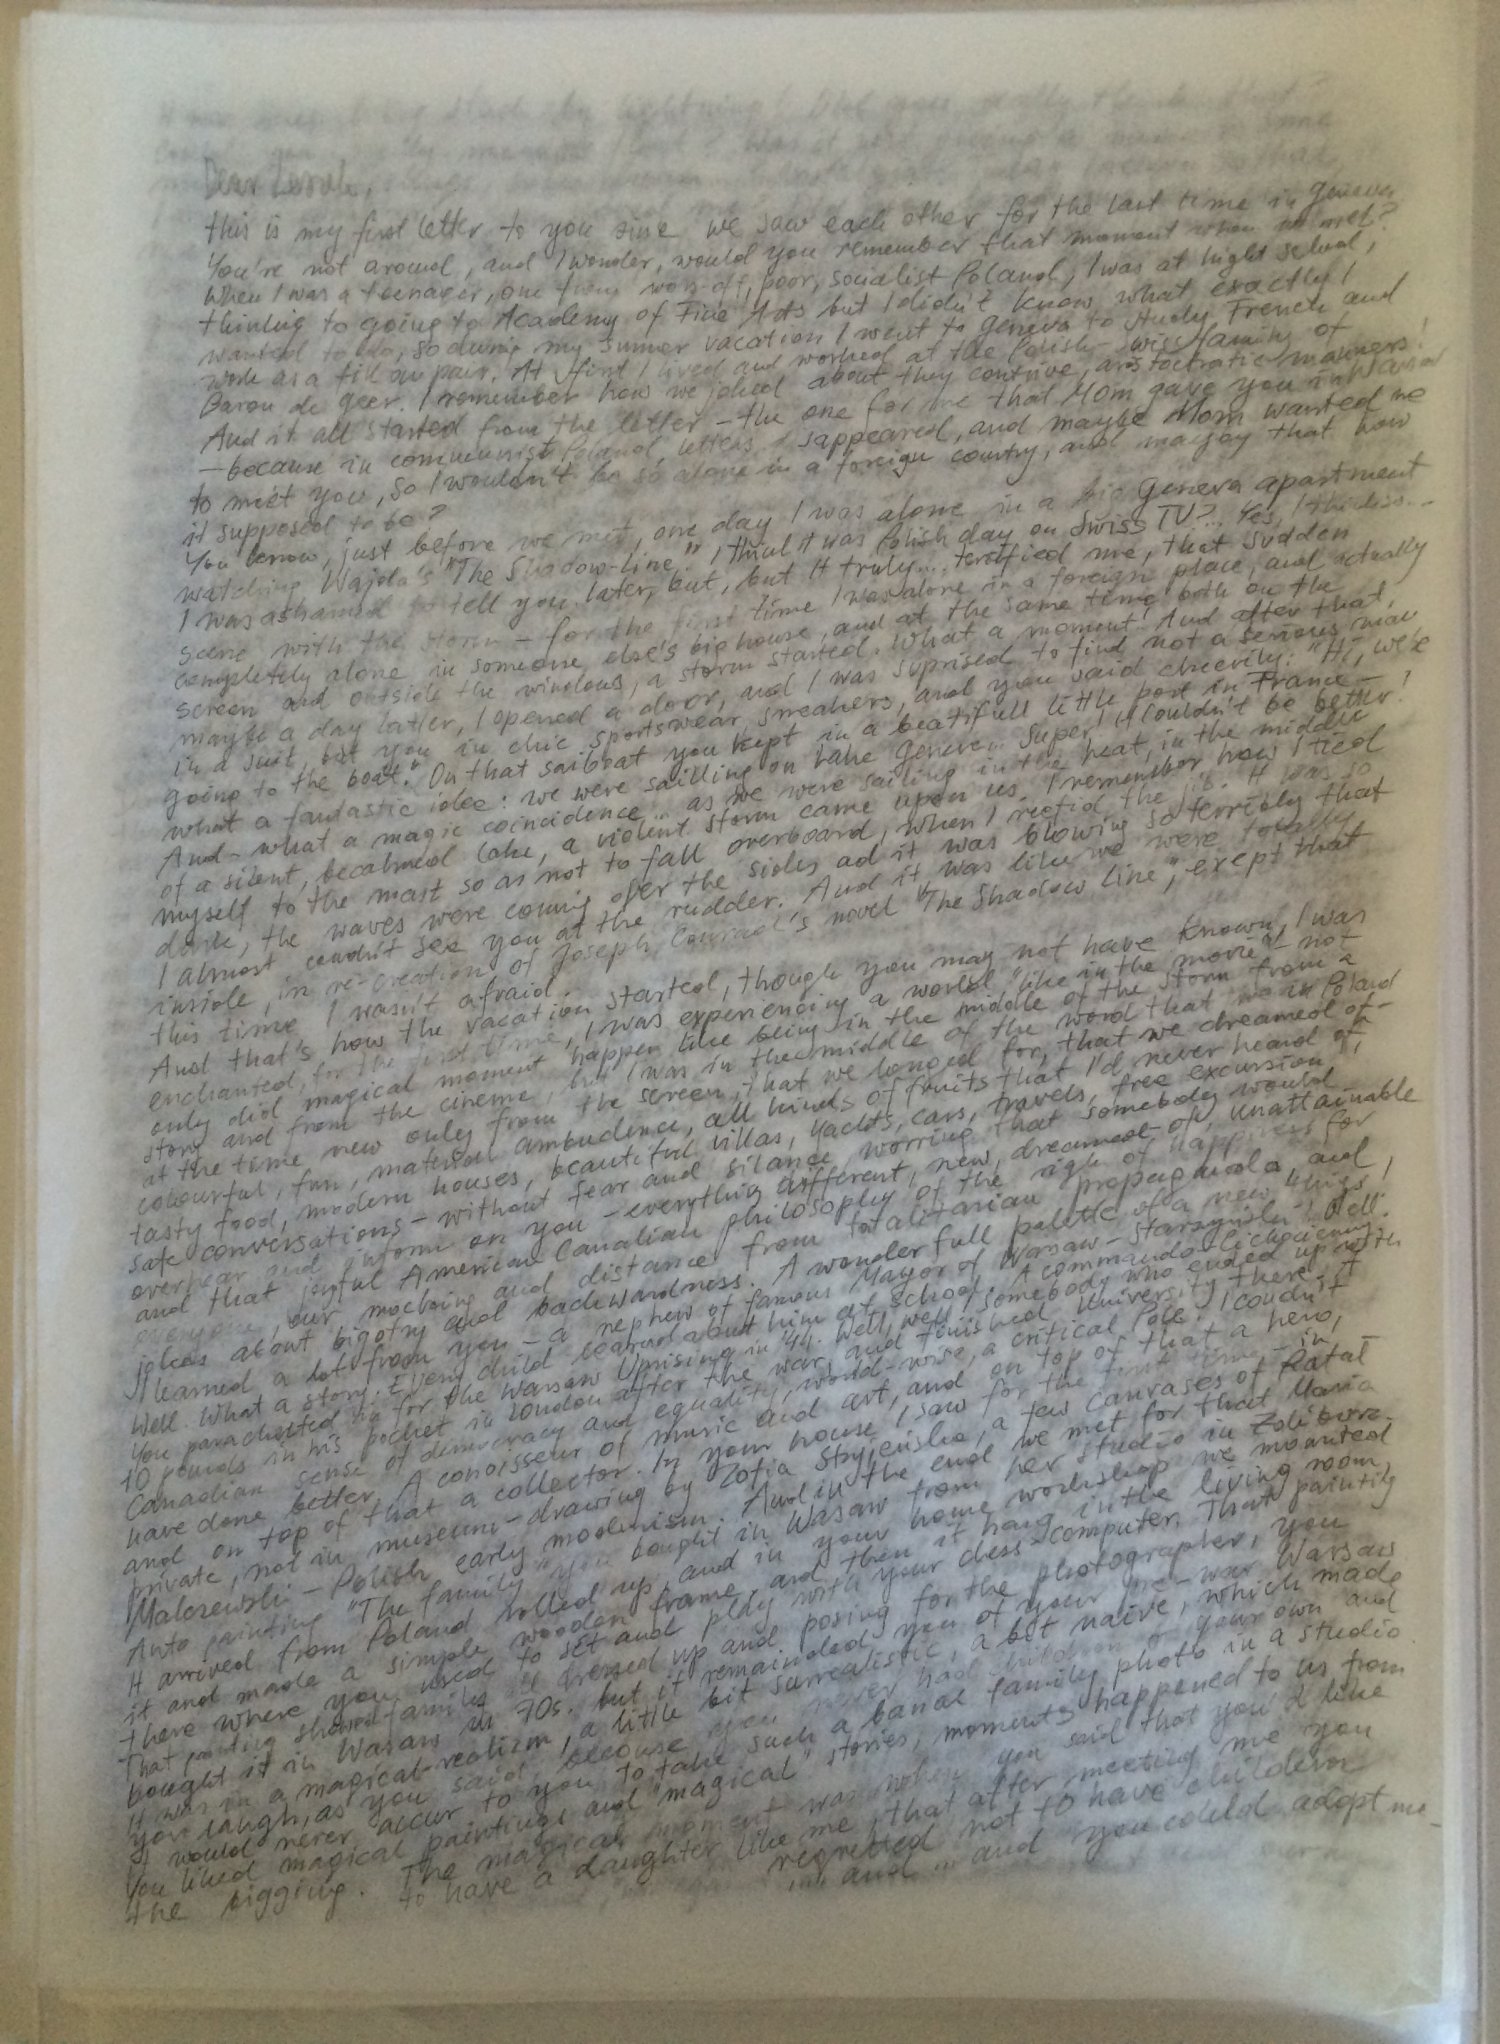 Dear
this is my first letter to you sine we saw each other for the last time in Geneva
You're not around, and I wonder, would you remember that moment when we met?
When I was a teenager, one from wors-off, poor, socialist Poland, I was at hight school,
thinkig to going to Academy of Fine Arts but I didn't know what exactly I
wanted to do, so during my summer vacation I went to Geneva to study French and
work as a fill au pair. At first I lived and worked at the Polish-Swiss family of
Baron de Geer. I remember how we joked about they contrive, aristocratic manners!
And it all started from the letter - the one for me that Mom gave you in Warsaw
- because in communist Poland, letters disappeared, and maybe Mom wanted me
to meet you, so I wouldn't be so alone in a foreign country, and that how
it supposed to be?
You know, just before we met, one day I was alone in a big Geneva apartment
watching Wajda's "The Shadow-line". I think it was Polish day on Swiss TV?... Yes, I think so...
I was ashamed to tell you later, but, but it truly... terrified me, that sudden
scene with the storm - for the first time I was alone in a foreign place, and actually
completely alone in someone else's big house, and at the same time both on the
screen and outside the windows, a storm started. What a moment! And after that,
maybe a day latter, I opened a door, and I was suprised to find not a serious man
in a suit, but you in chic sportswear, sneakers, and you said cheerily: "Hi, we're
going to the boat". On that sailboat you kept in a beatifull little port in France -
what a fantastic idee: we were sailling on Lake Geneve... Super, it couldn't be better!
And - what a magic coincidence... as we were sailing in the heat, in the middle
of a silent, becalmed lake, a violent storm came upon us. I remember how I tied
myself to the mast so as not to fall overboard, when I the jib. It was so
dark, the waves were coming over the sides ad it was blowing so terribly that
I almost coudn't see you at the rudder. And it was like we were totally
inside, in re-creation of Joseph Conrad's novel "The Shadow Line", exept that
this time I wasn't afraid.
And that's how the vacation started, though you may not have known, I was
enchanted, for the first time, I was experiencing a world "like in the movie" - not
only did magical moment happen like being in the middle of the storm from a
story and from the cinema, but I was in the middle of the word that we in Poland
at the time new only from the screen, that we longed for, that we dreamed of -
colourful, fun, material ambudence, all kinds of fruits that I'd never heard of,
tasty food, modern houses, beautiful villas, yachts, cars, travels, free excursion,
safe conversations - without fear and silance, worring that somebody would
overhear and inform on you - everything different, new, dreamed-of, unattainable
and that joyful American Canadian philosophy of the righ of happiness for
everyone, our mocking and distance from totalitarian propaganda, and
jokes about bigotry and backwardness. A wonderfull palette of a new things,
I learned a lot from you - a nephew of famous Mayor of Warsaw - Starzynski! Well.
Well. What a story. Every child learned about him at school. A commando - Cichociemny
You parachuted in for the Warsaw Uprising in '44. Well, well, somebody who ended up with
10 pounds in his pocket in London after the war and finished University there. A
Canadian sense of democracy and equality, world-wise, a critical Pole. I coudn't
have done better. A conoisseur of music and art, and on top of that a hero,
and on top of that a collector. In your house, I saw for the first time - in
private, not in museum - drawing by Zofia Stryjenska, a few canvases of Rafal
Malczewski - Polish early modernism. And in the end we met for that Maria
Anto painting "The family" you bought in Warsaw from her studio in Zoliborz.
It arrived from Poland rolled up, and in your home workshop we mounted
it and made a simple wooden frame, and then it hang in the living room,
there where you used to set and play with your chess computer. That painting
That painting showed family all dressed up and posing for the photographer, you
bought it in Warsaw in 70s. but it remainded you of your pre-war Warsaw
It was in a magical-realism, a little bit surrealistic, a bit naive, which made
you laugh, as you said, because you never had children of your own and
it would never accur to you to take such a banal family photo in a studio.
You liked magical paintings and "magical" stories, moments happened to us from
the bigging. The magical moment was when you said that you'd like
to have a daughter like me, that after meeting me you
regretted not to have children
and... and you could adopt me